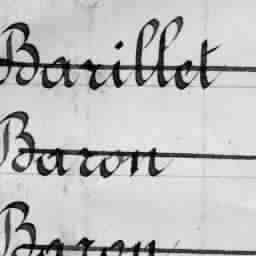 Barillet
Baron
Baron